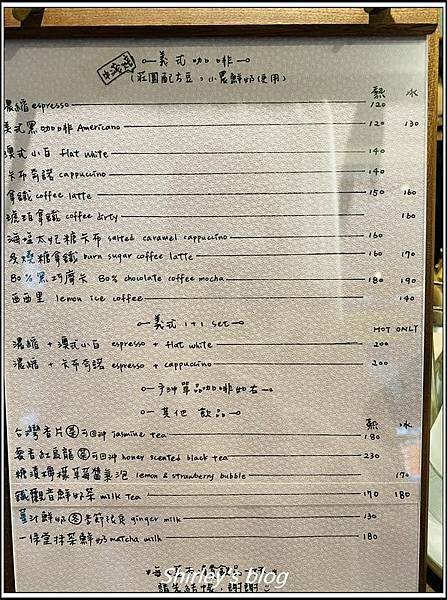 中淺焙 o—義式咖啡—o
(莊園配方豆,小農鮮奶使用)
熱 冰
濃縮 espresso 120
美式黑咖啡 Americano 120 130
澳式小白 flat white 140
卡布奇諾 cappuccino 140
拿鐵 coffee latte 150 160
琥珀拿鐵 coffee dirty 160
海塩太妃糖卡布 salted caramel cappuccino 160
炙燒糖拿鐵 burn sugar coffee latte 160 170
80%黑巧摩卡 80% chocolate coffee mocha 180 190
西西里 lemon ice coffee 140
o—義式 1+1 set—o HOT ONLY
濃縮 + 澳式小白 espresso + flat white 200
濃縮 + 卡布奇諾 espresso + cappuccino 200
o—手沖單品咖啡如右—o
o—其他 飲品—o
熱 冰
台灣香片 可回沖 Jasmine tea 180
蜜香紅烏龍 可回沖 honey scented black tea 230
糖漬檸檬草莓醬氣泡 lemon & strawberry bubble 170
鐵觀音鮮奶茶 milk tea 170 180
薑汁鮮奶 冬季節限定 ginger milk 130
一保堂抹茶鮮奶 matcha milk 180
請先結帳,謝謝
Shirley's blog